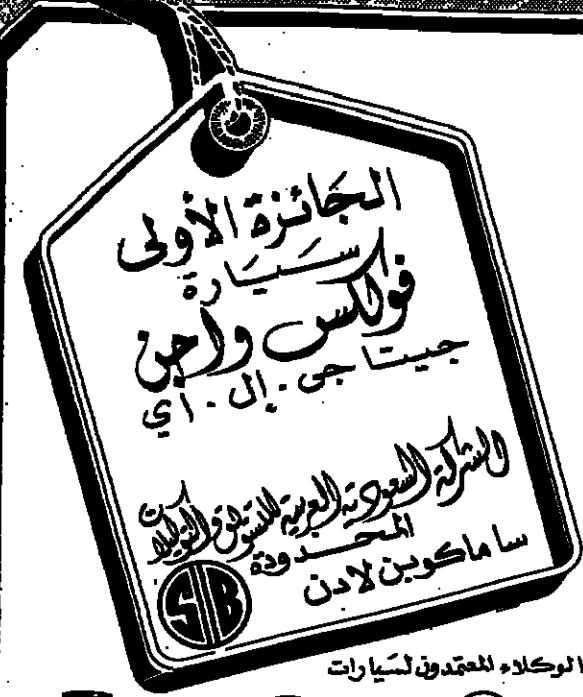 الجائزة الأولى
سيارة
فولكس واجن
جيتا جى . إل . آي
الشركة السعودية العربية للتسويق والتوكيلات
المحدودة
ساماكو بن لادن
SB
الوكلاء المعتمدون لسيارات